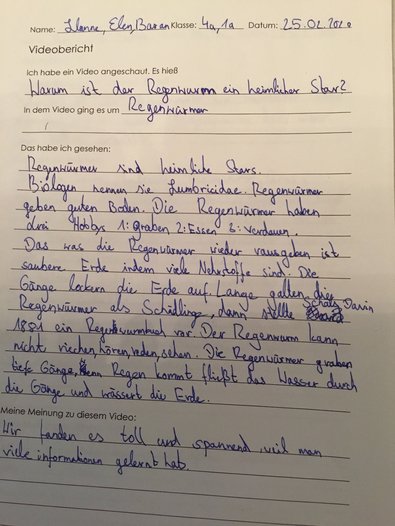 Name: Hanne, Elen, Baran Klasse: 4a, 1a Datum: 25.02.2020
Videobericht
Ich habe ein Video angeschaut. Es hieß
Warum ist der Regenwurm ein heimlicher Star?
In dem Video ging es um Regenwürmer
Das habe ich gesehen:
Regenwürmer sind heimliche Stars.
Biologen nennen sie Lumbricidae. Regenwürmer
geben guten Boden. Die Regenwürmer haben
drei Hobbys 1: graben 2: Essen 3: verdauen.
Das was die Regenwürmer wieder rausgeben ist
saubere Erde indem viele Nehrstoffe sind. Die
Gänge lockern die Erde auf. Lange galten die
Regenwürmer als Schädling, dann stellte Charls Darin
1881 ein Regenwurmbuch vor. Der Regenwurm kann
nicht riechen, hören, reden, sehen. Die Regenwürmer graben
tiefe Gänge, wenn Regen kommt fließt das Wasser durch
die Gänge und wässert die Erde.
Meine Meinung zu diesem Video:
Wir fanden es toll und spannend weil man
viele informationen gelernt hab.